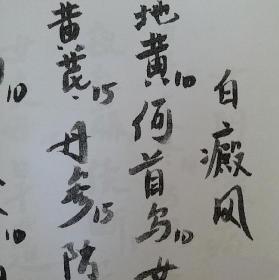 白癜风
地黄10何首乌10女
黄芪15丹参15防
10
10